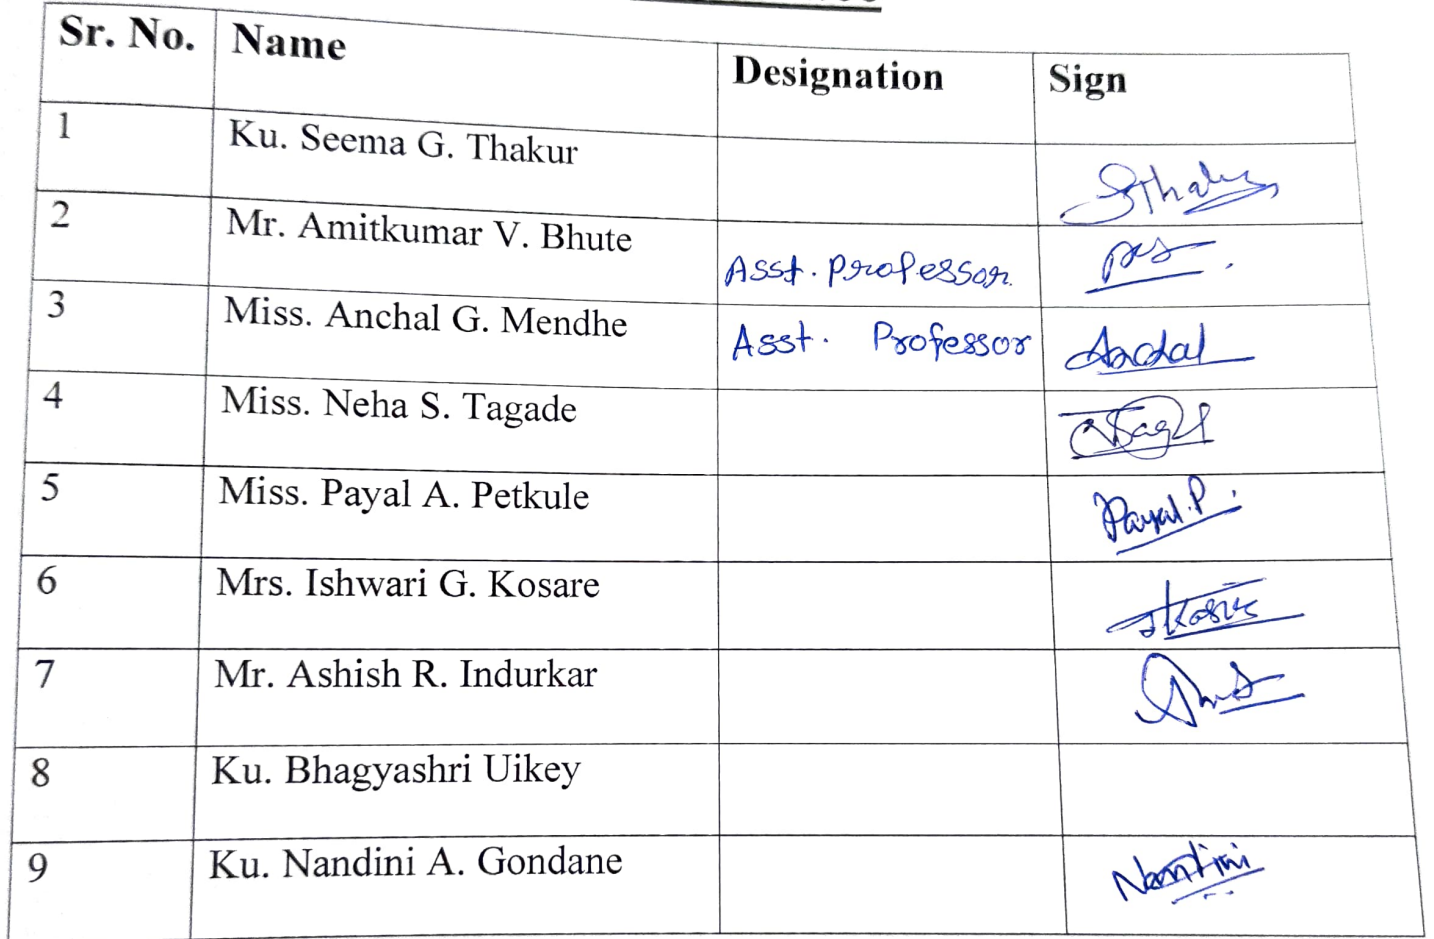 Sr. No. Name Designation Sign
1 Ku. Seema G. Thakur SThakur
2 Mr. Amitkumar V. Bhute Asst. Professor.
3 Miss. Anchal G. Mendhe Asst. Professor Anchal
4 Miss. Neha S. Tagade
5 Miss. Payal A. Petkule Payal.P.
6 Mrs. Ishwari G. Kosare
7 Mr. Ashish R. Indurkar
8 Ku. Bhagyashri Uikey
9 Ku. Nandini A. Gondane Nandini